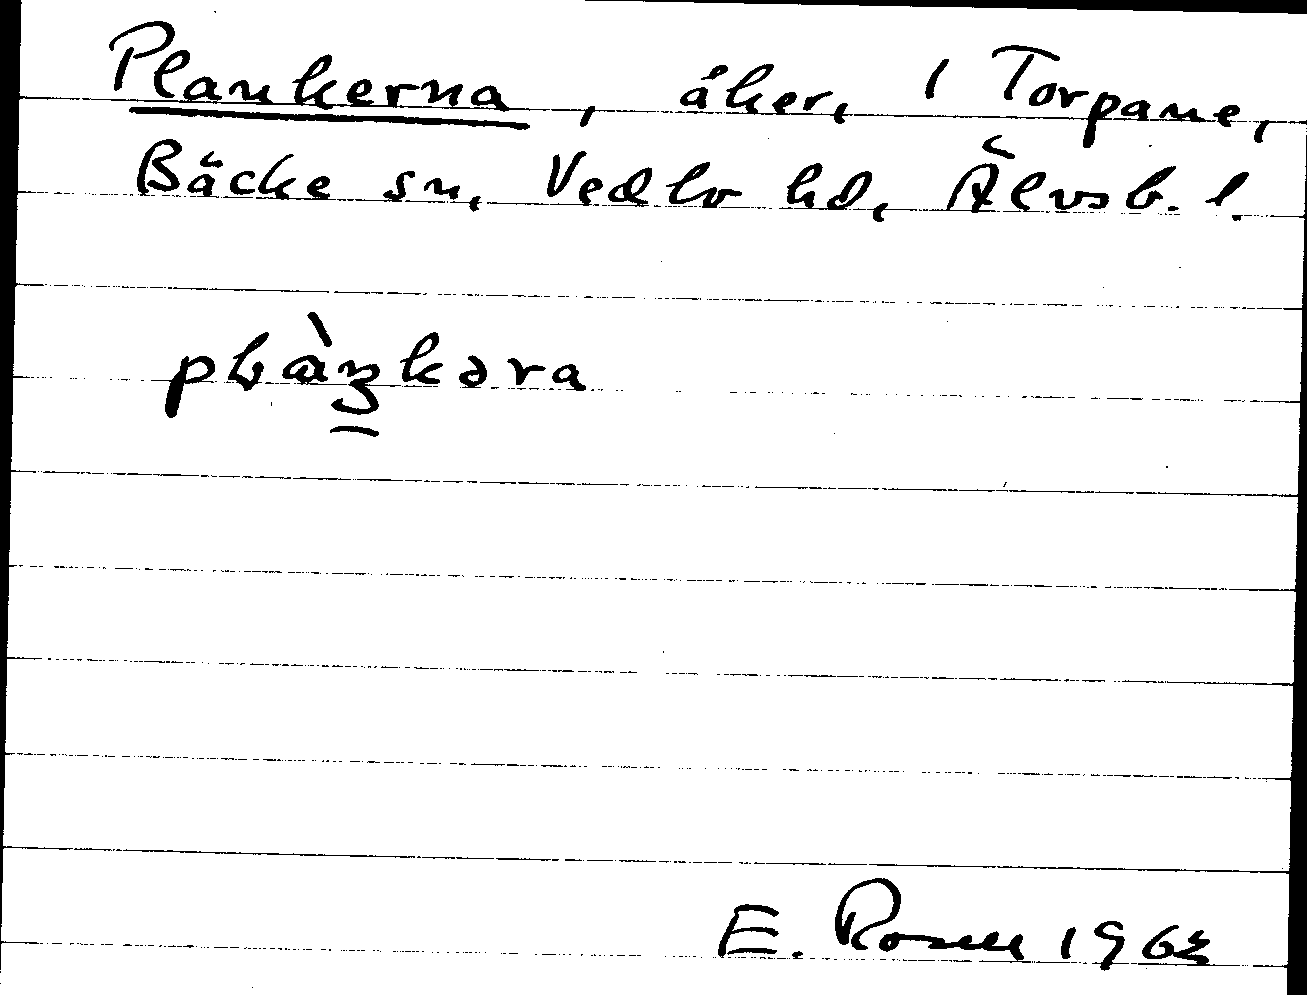 Plankerna, åker, 1 Torpane,
Bäcke sn, Vedbo hd, Älvsb. l.
plàŋkəra
E. Rosell 1963